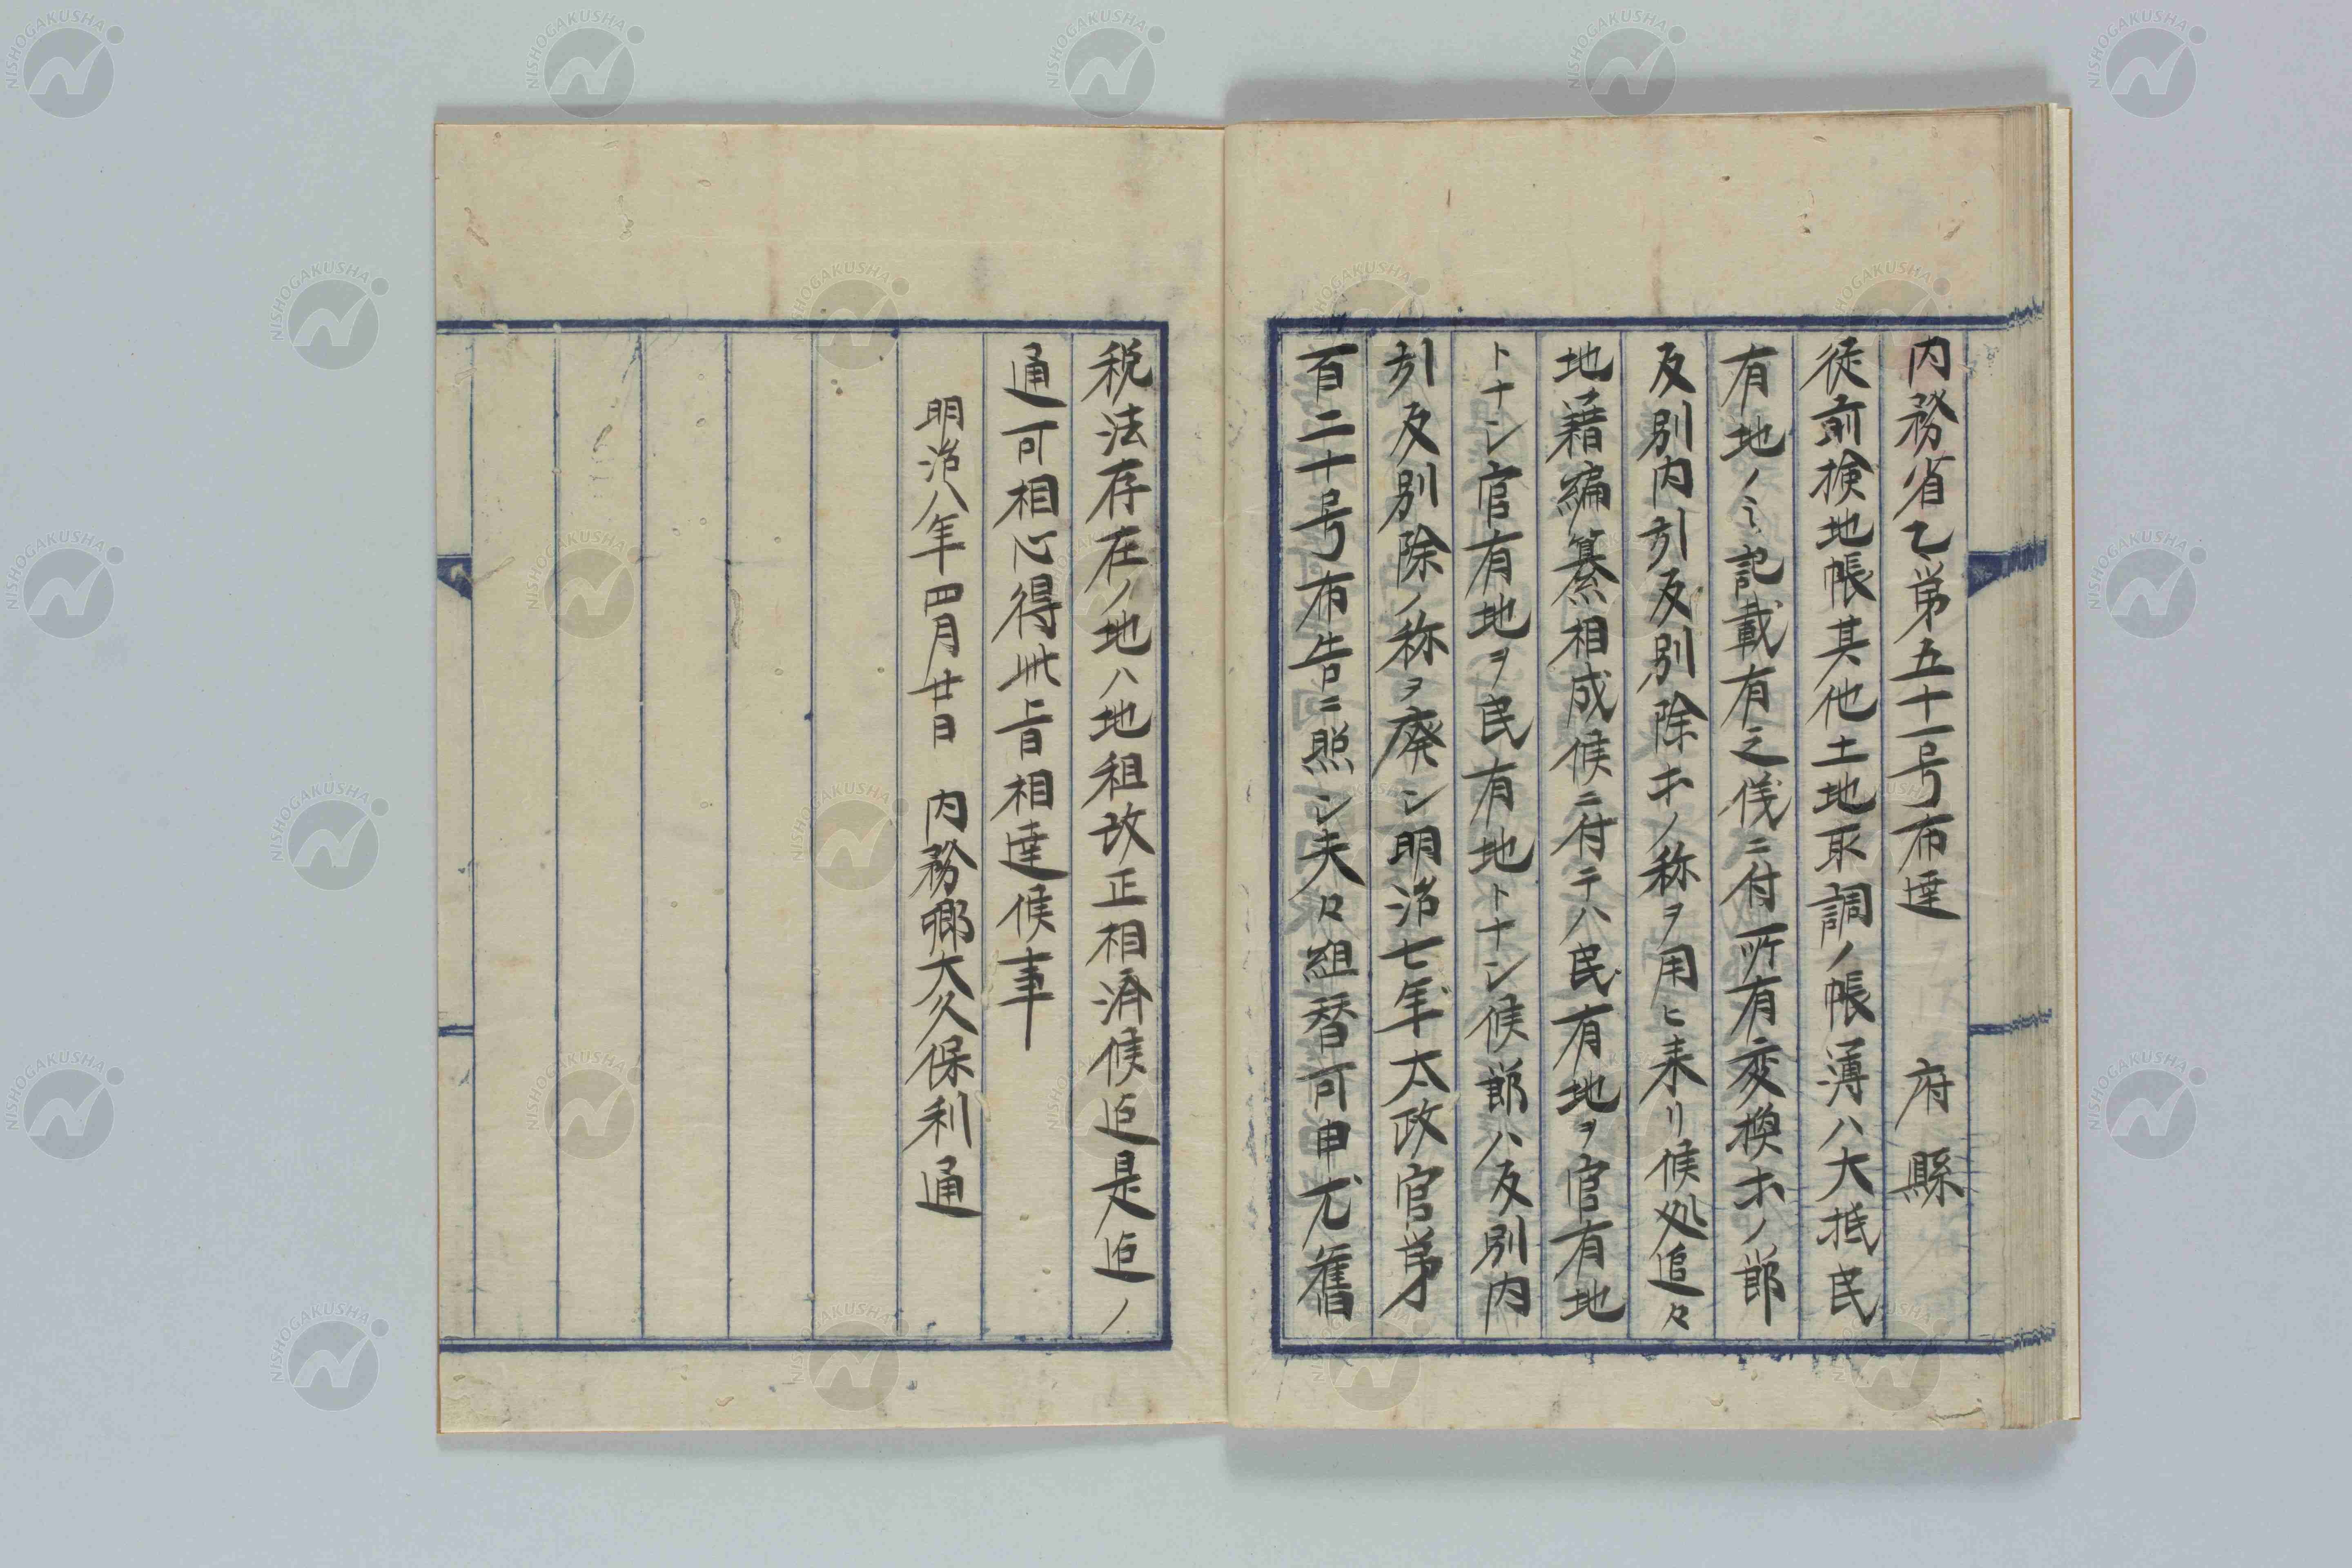 内務省乙第五十一号布達　府縣
従前検地帳其他土地取調ノ帳簿ハ大抵民
有地ノミ記載有之儀ニ付所有変換ホノ節
反別内引反別除ホノ称ヲ用ヒ来リ候処追々
地籍編纂相成候ニ付テハ民有地ヲ官有地
トナシ官有地ヲ民有地トナシ候節ハ反別内
引反別除ノ称ヲ廃シ明治七年太政官第
百二十号布告ニ照シ夫々組替可申尤舊
税法存在ノ地ハ地租改正相済候迄是迄ノ
通可相心得此旨相達候事
明治八年四月廿日　内務卿大久保利通
NISHOGAKUSHA